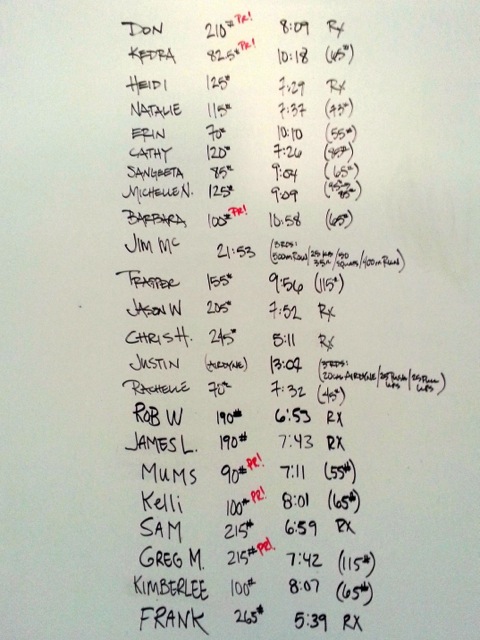 DON 210# PR! 8:09 RX
KEDRA 82.5# PR! 10:18 (65#)
HEIDI 125# 7:29 RX
NATALIE 115# 7:37 (73#)
ERIN 70# 10:10 (55#)
CATHY 120# 7:26 (85#)
SANGEETA 85# 9:04 (65#)
MICHELLE N. 125# 9:09
BARBARA 100# PR! 10:58 (65#)
JIM MC 21:53 (3 RDS:
500m ROW/
TRAPPER 155# 9:56 (115#)
JASON W 205# 7:52 RX
CHRIS H. 245# 5:11 RX
JUSTIN (AIRDYNE) 13:02 (3 RDS:
AIRDYNE/
RACHELLE 70# 7:32 (45#)
ROB W 190# 6:53 RX
JAMES L. 190# 7:43 RX
MUMS 90# PR! 7:11 (55#)
Kelli 100# PR! 8:01 (65#)
SAM 215# 6:59 RX
GREG M. 215# PR! 7:42 (115#)
KIMBERLEE 100# 8:07 (65#)
FRANK 265# 5:39 RX